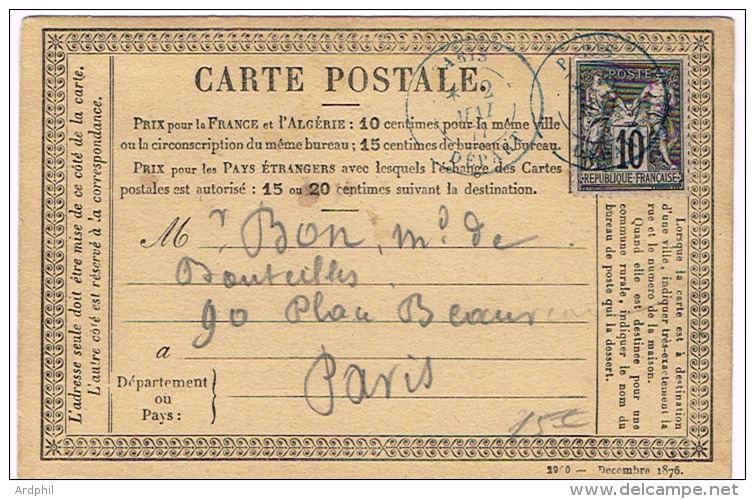 CARTE POSTALE.
PRIX pour la FRANCE et l'ALGÉRIE : 10 centimes pour la même ville
ou la circonscription du même bureau ; 15 centimes de bureau à bureau.
PRIX pour les PAYS ÉTRANGERS avec lesquels l'échange des Cartes
postales est autorisé : 15 ou 20 centimes suivant la destination.
PARIS
2
MAI
DÉPART
POSTE
10
RÉPUBLIQUE FRANÇAISE
Mr BON, md de
Bouteilles
90 Beaureau
a Paris
Département
ou
Pays :
L'adresse seule doit être mise de ce côté de la carte.
L'autre côté est réservé à la correspondance.
Lorsque la carte est à destination
d'une ville, indiquer très-exactement la
rue et le numéro de la maison.
Quand elle est destinée pour une
commune rurale, indiquer le nom du
bureau de poste qui la dessert.
15€
Décembre 1876.
Ardphil
delcampe.net